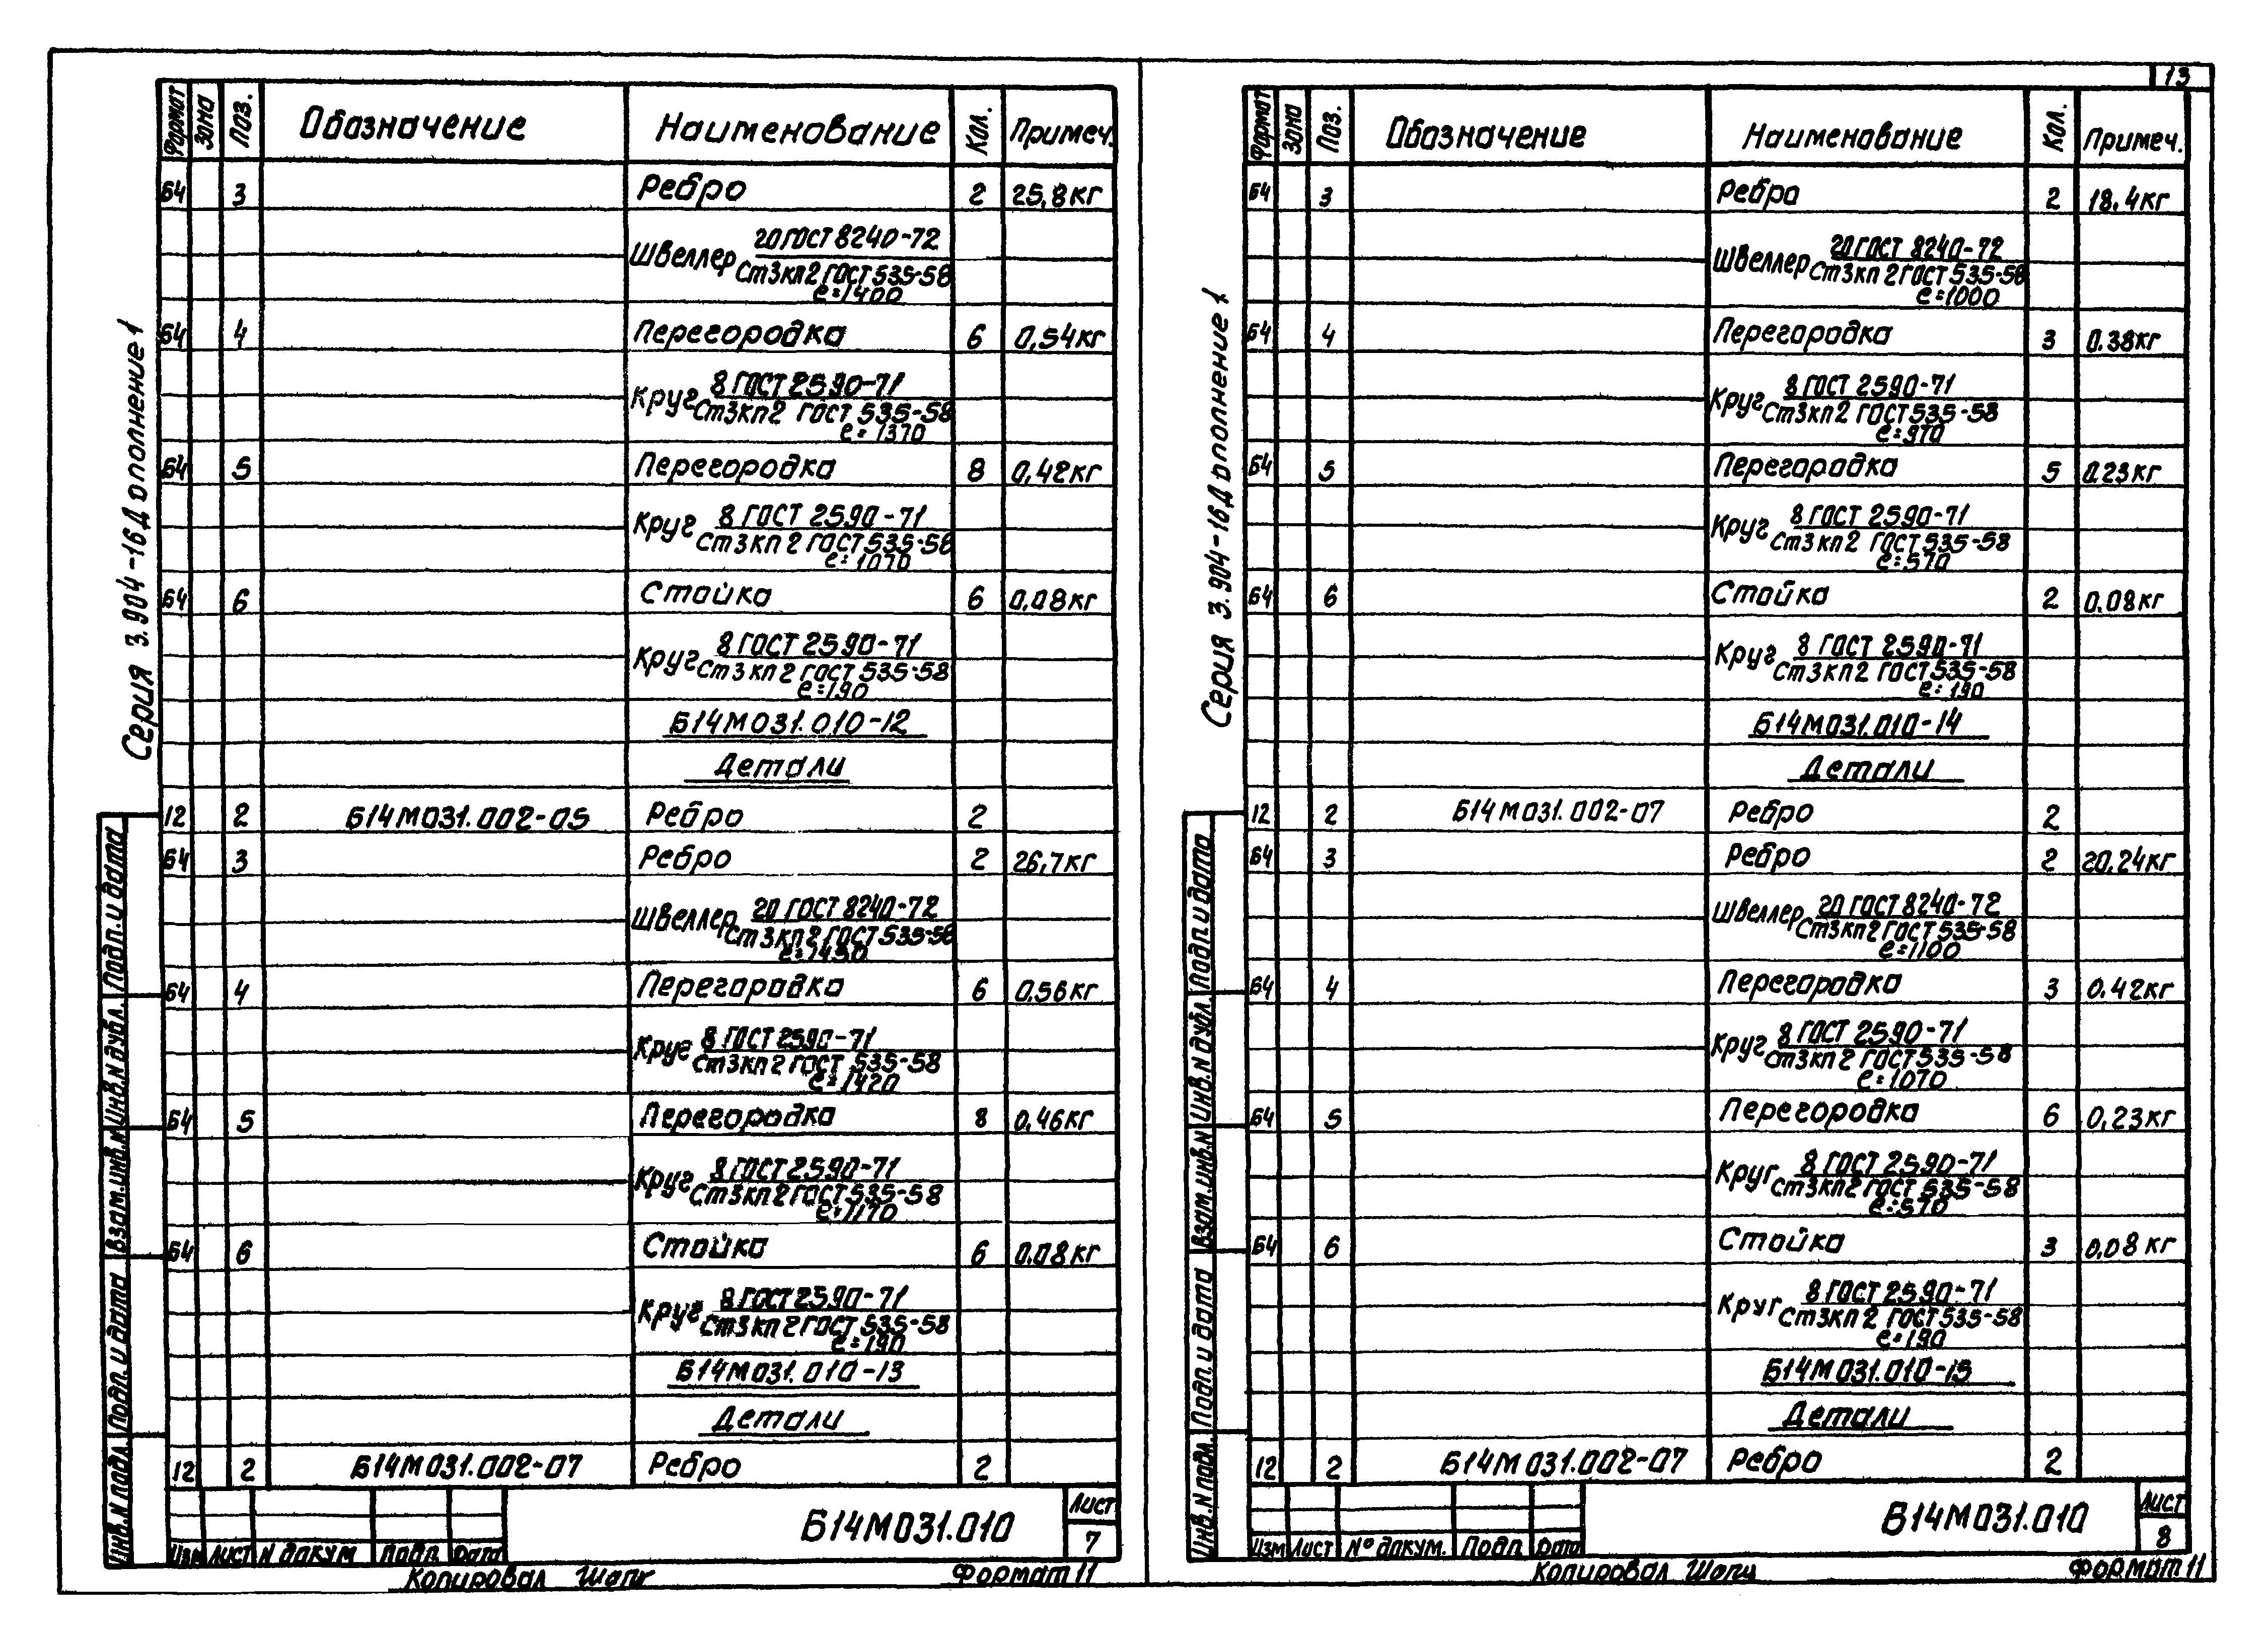 13
Серия 3.904-16 Дополнение 1
Формат Зона Поз. Обозначение Наименование Кол. Примеч.
Б4 3 Ребро 2 25,8кг
20 ГОСТ 8240-72
Швеллер Ст3кп2 ГОСТ 535-58
ℓ=1400
Б4 4 Перегородка 6 0,54кг
8 ГОСТ 2590-71
Круг Ст3кп2 ГОСТ 535-58
ℓ=1370
Б4 5 Перегородка 8 0,42кг
8 ГОСТ 2590-71
Круг Ст3кп2 ГОСТ 535-58
ℓ=1070
Б4 6 Стойка 6 0,08кг
8 ГОСТ 2590-71
Круг Ст3кп2 ГОСТ 535-58
ℓ=190
Б14М031.010-12
Детали
12 2 Б14М031.002-05 Ребро 2
Б4 3 Ребро 2 26,7кг
20 ГОСТ 8240-72
Швеллер Ст3кп2 ГОСТ 535-58
ℓ=1450
Б4 4 Перегородка 6 0,56кг
8 ГОСТ 2590-71
Круг Ст3кп2 ГОСТ 535-58
ℓ=1420
Б4 5 Перегородка 8 0,46кг
8 ГОСТ 2590-71
Круг Ст3кп2 ГОСТ 535-58
ℓ=1170
Б4 6 Стойка 6 0.08кг
8 ГОСТ 2590-71
Круг Ст3кп2 ГОСТ 535-58
ℓ=190
Б14М031.010-13
Детали
12 2 Б14М031.002-07 Ребро 2
Инв.N подл. Подп. и дата Взам.инв.N Инв.N дубл. Подп. и дата
Б14М031.010
Лист
7
Изм Лист N докум Подп Дата
Копировал Формат 11
Серия 3.904-16 Дополнение 1
Формат Зона Поз. Обозначение Наименование Кол. Примеч.
Б4 3 Ребро 2 18.4кг
20 ГОСТ 8240-72
Швеллер Ст3кп2 ГОСТ 535-58
ℓ=1000
Б4 4 Перегородка 3 0.38кг
8 ГОСТ 2590-71
Круг Ст3кп2 ГОСТ 535-58
ℓ=970
Б4 5 Перегородка 5 0.23кг
8 ГОСТ 2590-71
Круг Ст3кп2 ГОСТ 535-58
ℓ=570
Б4 6 Стойка 2 0.08кг
8 ГОСТ 2590-71
Круг Ст3кп2 ГОСТ 535-58
ℓ=190
Б14М031.010-14
Детали
12 2 Б14М031.002-07 Ребро 2
Б4 3 Ребро 2 20,24кг
20 ГОСТ 8240-72
Швеллер Ст3кп2 ГОСТ 535-58
ℓ=1100
Б4 4 Перегородка 3 0.42кг
8 ГОСТ 2590-71
Круг Ст3кп2 ГОСТ 535-58
ℓ=1070
Б4 5 Перегородка 6 0,23кг
8 ГОСТ 2590-71
Круг Ст3кп2 ГОСТ 535-58
ℓ=570
Б4 6 Стойка 3 0,08кг
8 ГОСТ 2590-71
Круг Ст3кп2 ГОСТ 535-58
ℓ=190
Б14М031.010-15
Детали
12 2 Б14М031.002-07 Ребро 2
Инв.N подл. Подп. и дата Взам.инв.N Инв.N дубл. Подп. и дата
Б14М031.010
Лист
8
Изм Лист N° докум. Подп Дата
Копировал Формат 11